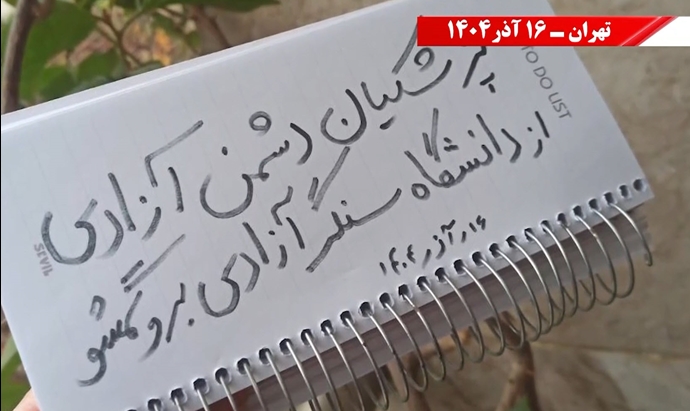 تهران ـ ۱۶ آذر ۱۴۰۴
TO DO LIST
پزشکیان دشمن آزادی
از دانشگاه سنگر آزادی برو گمشو
۱۶ر آذر ۱۴۰۴